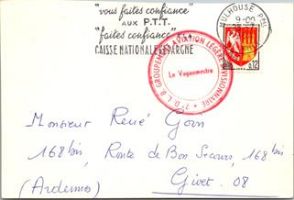 "vous faites confiance"
AUX P.T.T.
"faites confiance" A LA
CAISSE NATIONALE D'EPARGNE
MULHOUSE PPAL
9-00
0,12
GROUPEMENT AVIATION LEGERE DIVISIONNAIRE
Le Vaguemestre
Monsieur René Gorn
168 bis, Route de Bon Secours, 168 bis
(Ardennes) Givet. 08